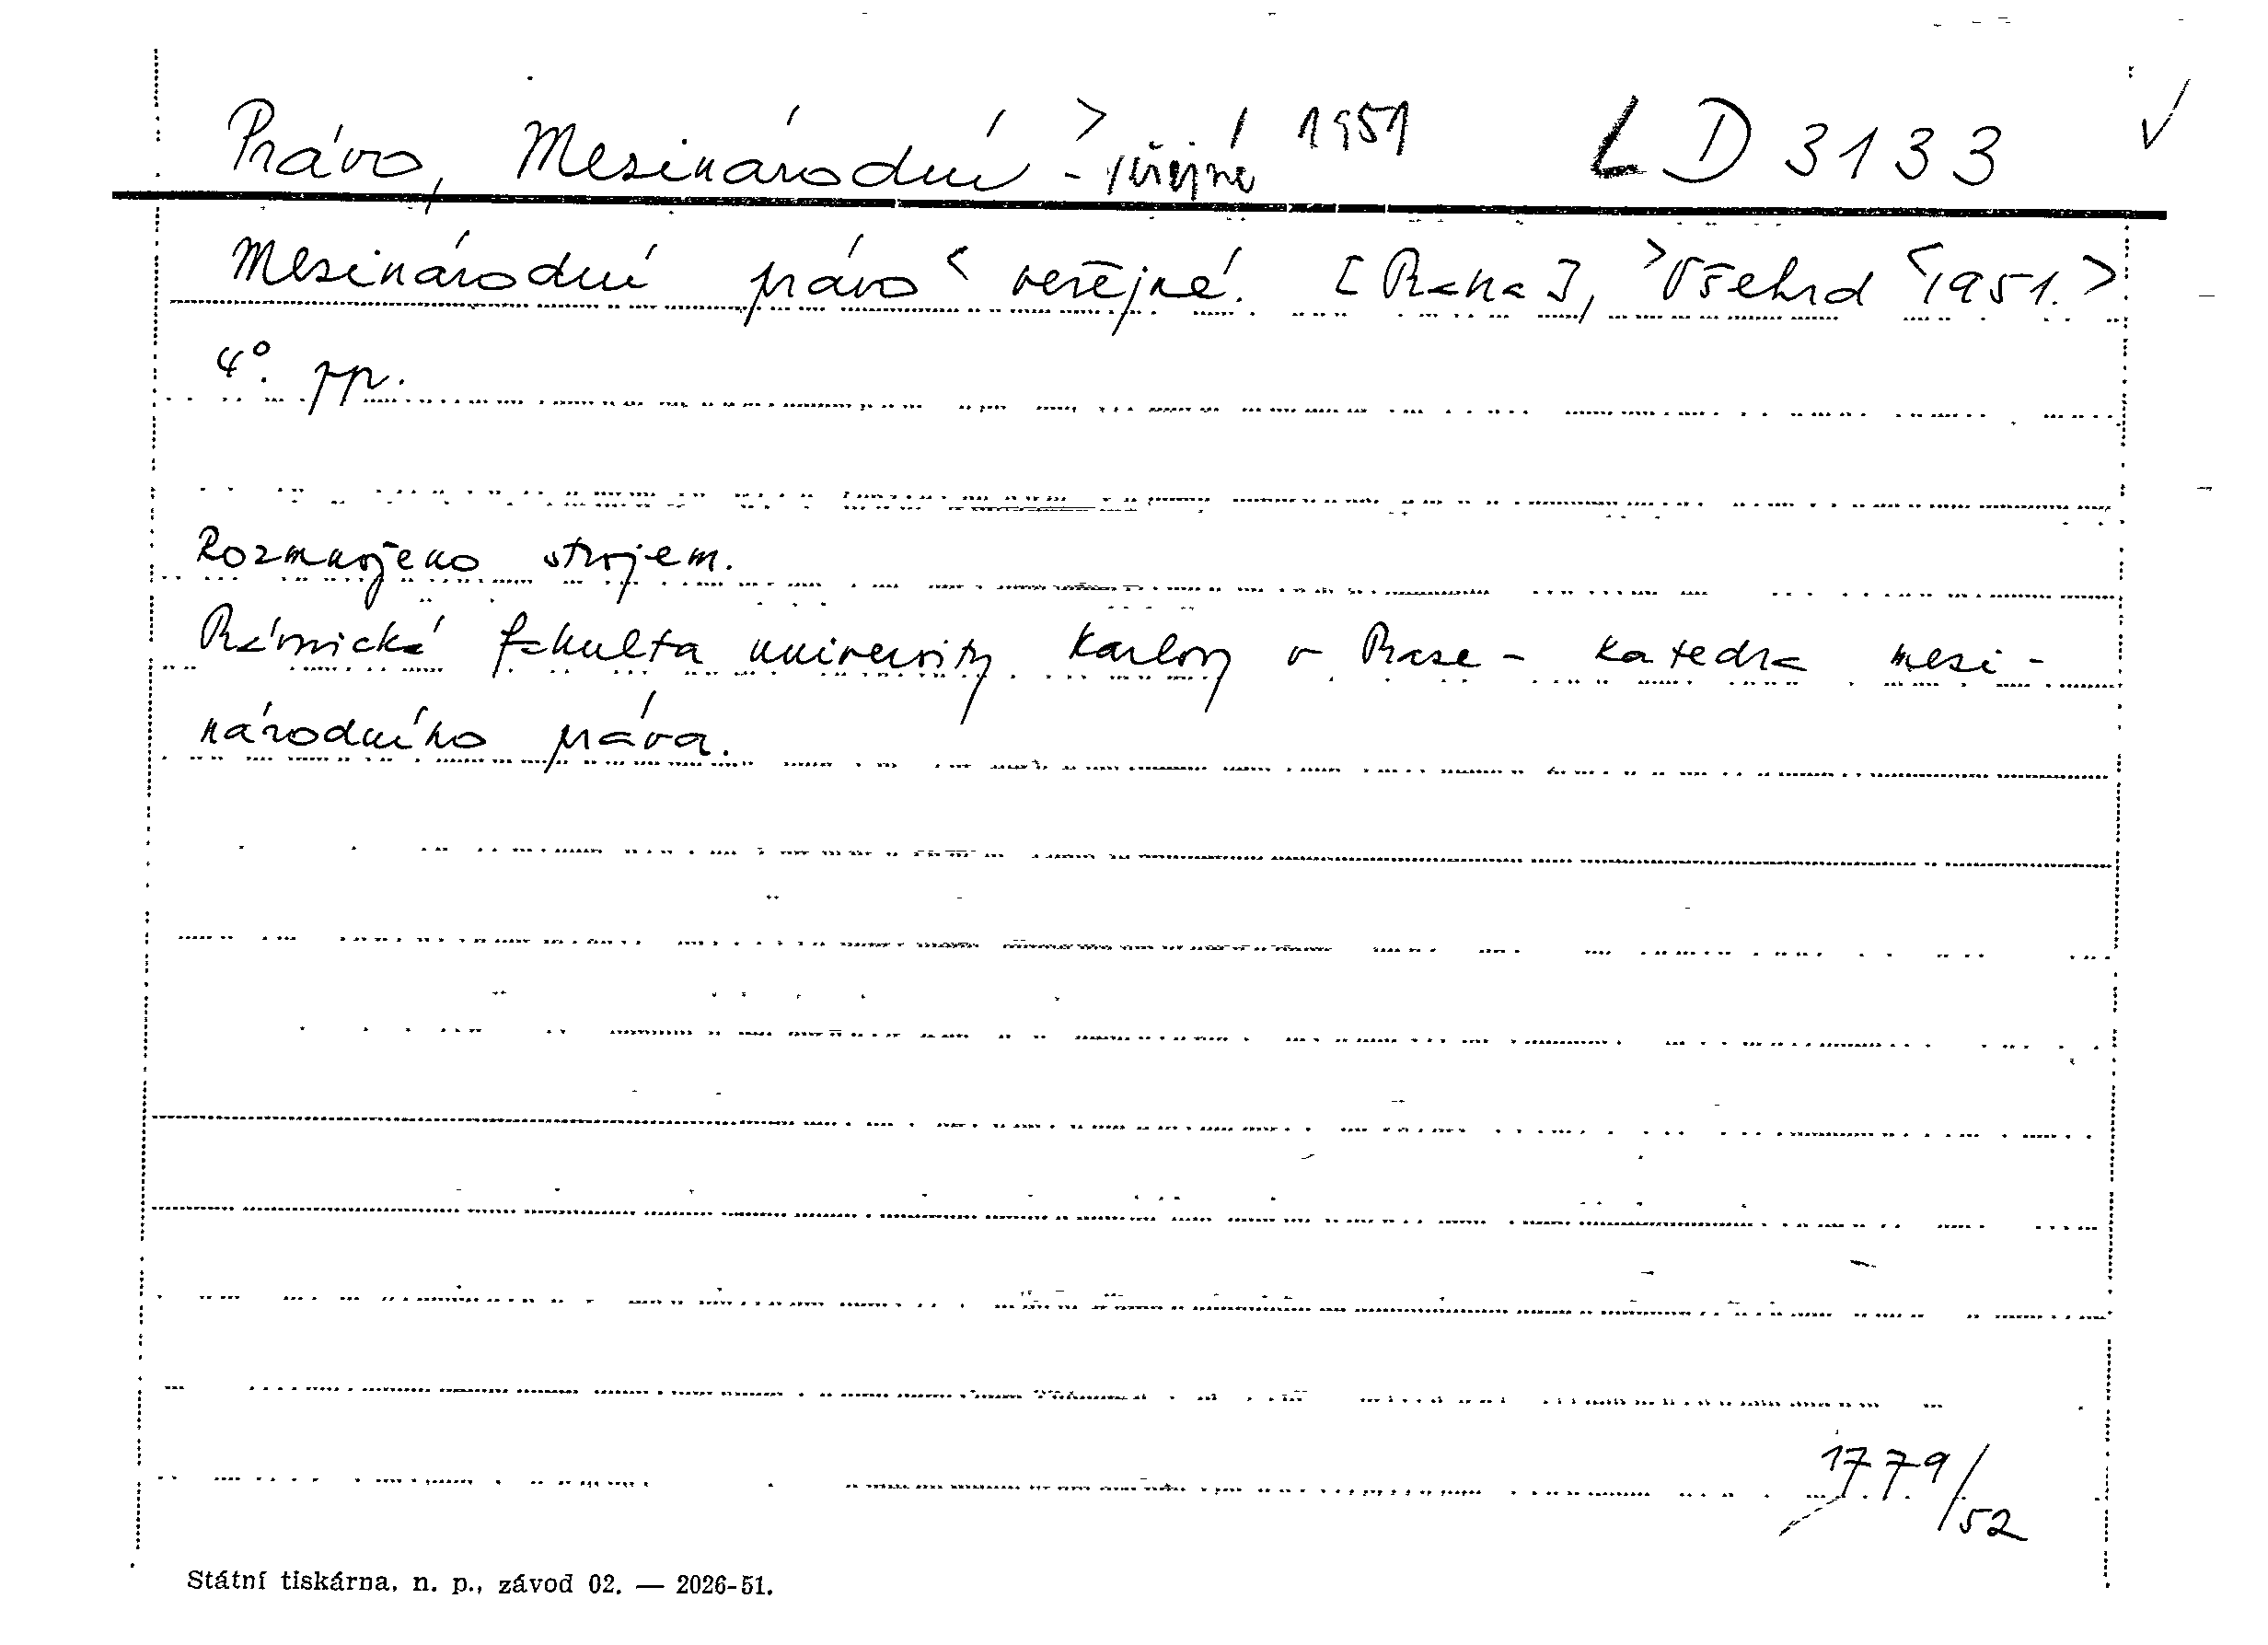 Právo, Mezinárodní > - veřejné 1951 LD 3133 ✓
Mezinárodní právo < veřejné. [Praha], > Všehrd < 1951. >
4°. pp.
Rozmnoženo strojem.
Právnická fakulta university Karlovy v Praze - Katedra mezi-
národního práva.
1779/52
Státní tiskárna, n. p., závod 02. — 2026-51.